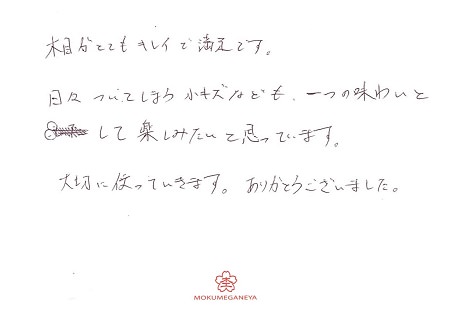 木目がとてもキレイで満足です。
日々ついてしまう小キズなども、一つの味わいと
して楽しみたいと思っています。
大切に使っていきます。ありがとうございました。
MOKUMEGANEYA